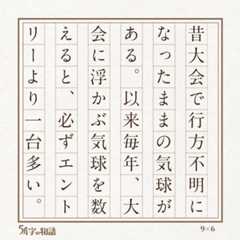 昔大会で行方不明に
なったままの気球が
ある。以来毎年、大
会に浮かぶ気球を数
えると、必ずエント
リーより一台多い。
54字の物語
9×6